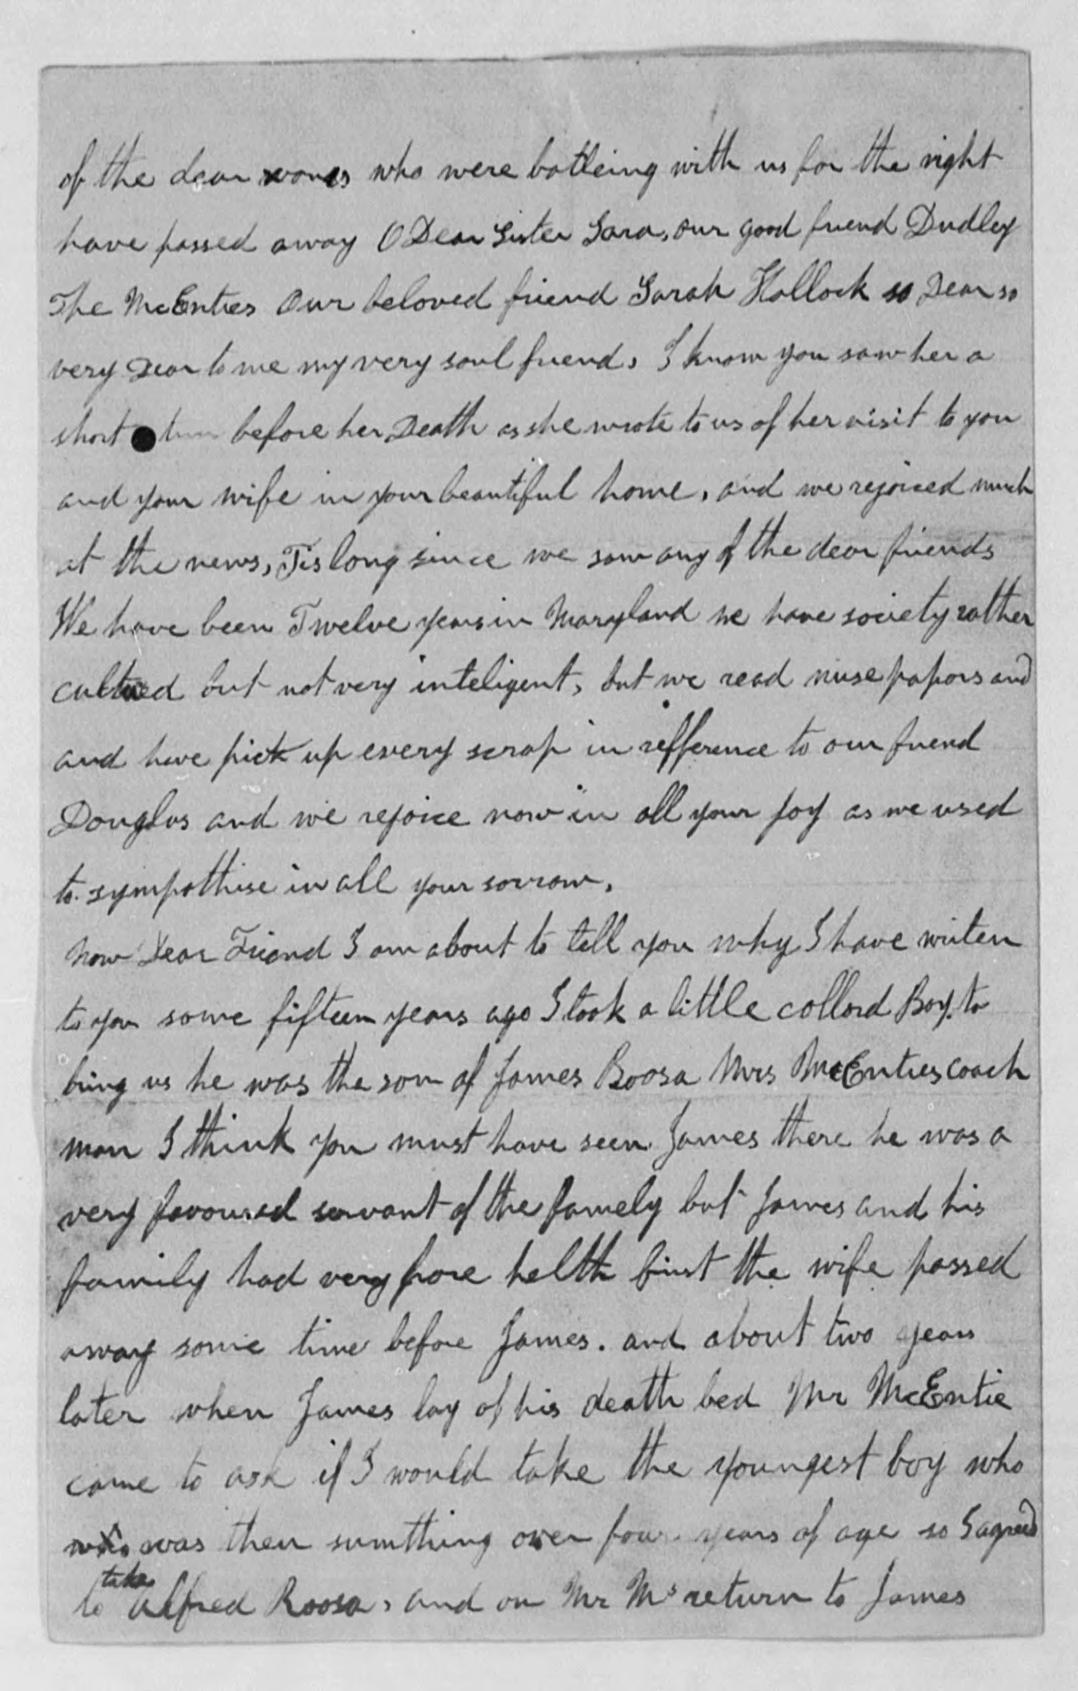 of the dear wones who were batleing with us for the right
have passed away O Dear Sister Sara, our good friend Dudley
The McEnties Our beloved friend Sarah Hallock so Dear so
very Dear to me my very soul friend, I know you saw her a
short before her Death as she wrote to us of her visit to you
and your wife in your beautiful home, and we rejoiced much
at the news, Tis long since we saw any of the dear friends
We have been Twelve years in Maryland we have society rather
cultured but not very inteligent, but we read nuse papors and
and have pick up every scrap in refference to our friend
Douglas and we rejoice now in all your joy as we used
to sympathise in all your sorrow,
Now Dear Friend I am about to tell you why I have writen
to you some fifteen years ago I took a little collord Boy, to
bring us he was the son of James Roosa Mrs McEnties coach
man I think you must have seen James there he was a
very favoured servant of the famely but James and his
family had very pore helth first the wife passed
away some time before James. and about two years
later when James lay of his death bed Mr McEntie
came to ask if I would take the youngest boy who
was then sumthing over four years of age so I agreed
to take Alfred Roosa, and on Mr Ms return to James